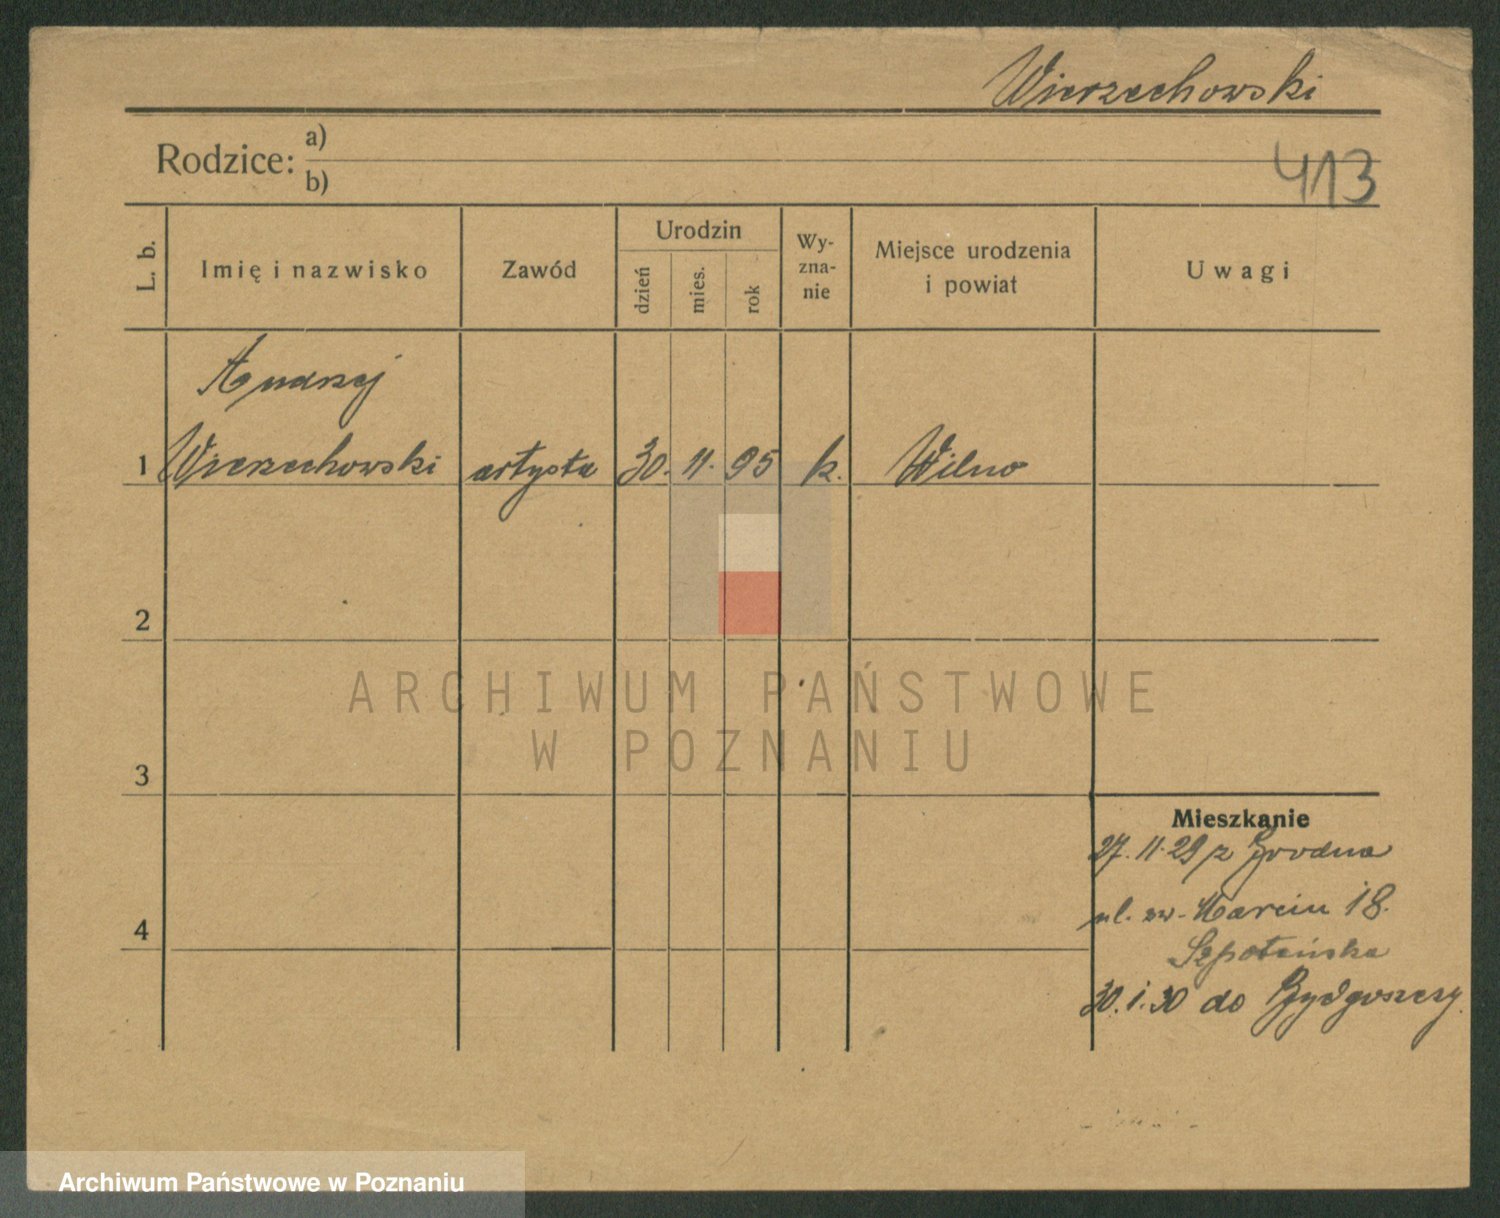 Wierzechowski
Rodzice: a)
b)
413
L. b.
Imię i nazwisko
Zawód
Urodzin
dzień
mies.
rok
Wy-
zna-
nie
Miejsce urodzenia
i powiat
Uwagi
Andrzej
1 Wierzechowski artysta 30. 11. 95 k. Wilno
2
3
4
Mieszkanie
27.11.29 z Grodna
ul. św. Marcin 18.
Szpotańska
30.1.30 do Bydgoszczy.
ARCHIWUM PAŃSTWOWE
W POZNANIU
Archiwum Państwowe w Poznaniu